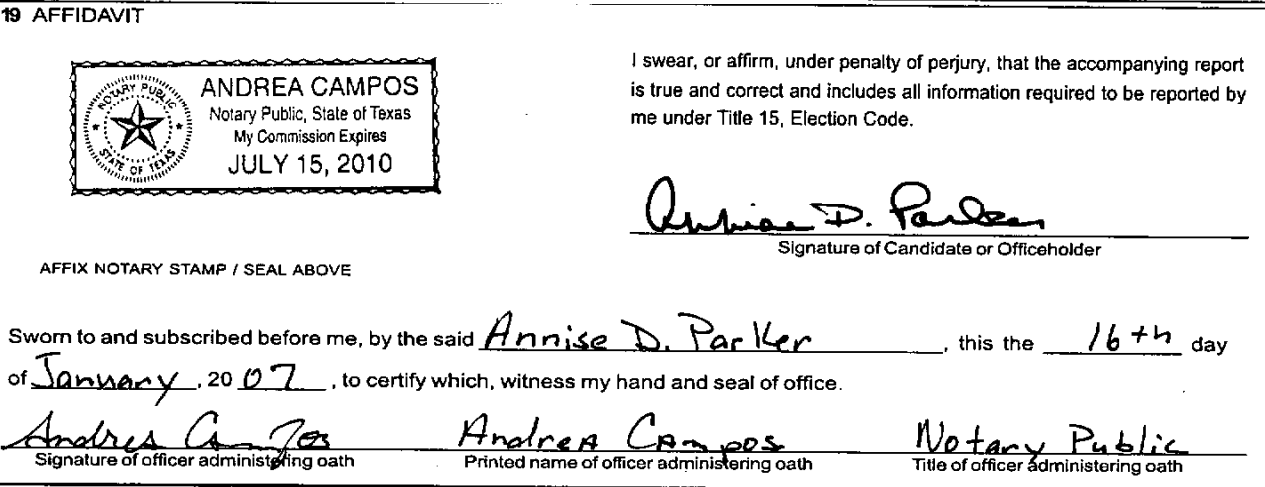 19 AFFIDAVIT
NOTARY PUBLIC
STATE OF TEXAS
ANDREA CAMPOS
Notary Public, State of Texas
My Commission Expires
JULY 15, 2010
I swear, or affirm, under penalty of perjury, that the accompanying report
is true and correct and includes all information required to be reported by
me under Title 15, Election Code.
Annise D. Parker
Signature of Candidate or Officeholder
AFFIX NOTARY STAMP / SEAL ABOVE
Sworn to and subscribed before me, by the said Annise D. Parker, this the 16th day
of January, 20 07, to certify which, witness my hand and seal of office.
Andrea Campos Andrea Campos Notary Public
Signature of officer administering oath Printed name of officer administering oath Title of officer administering oath